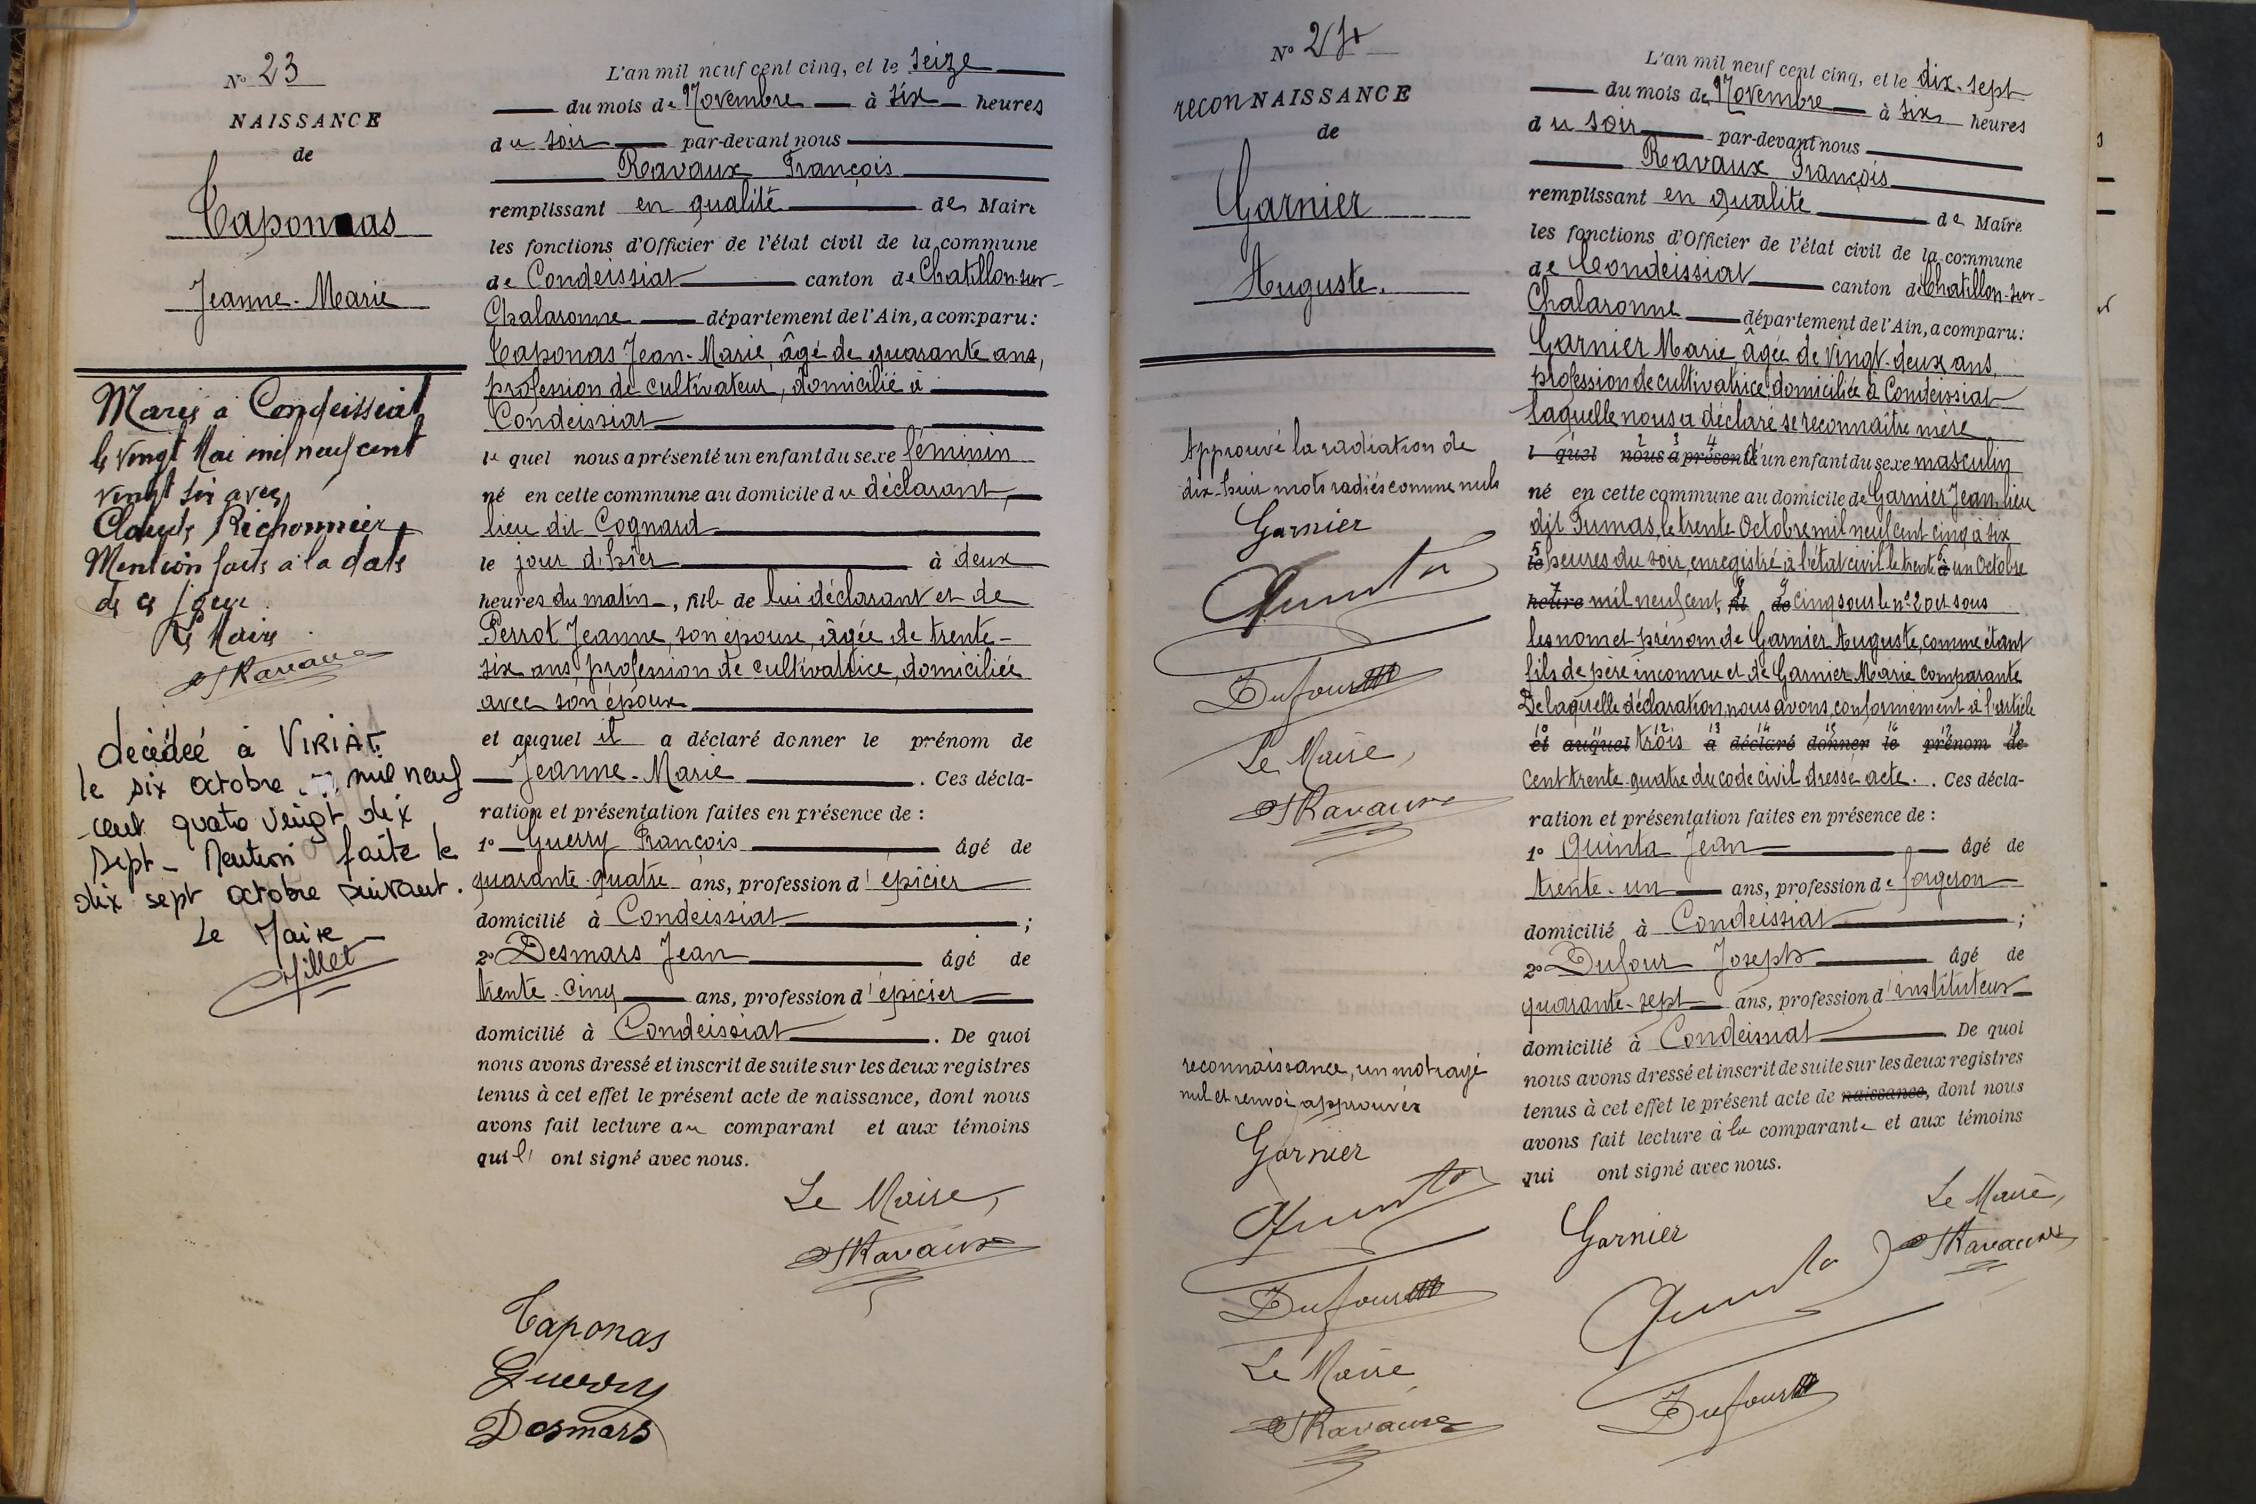 N° 23
NAISSANCE
de
Caponas
Jeanne-Marie
Mariée à Condeissiat
le vingt Mai mil neuf cent
vingt six avec
Claude Richonnier
Mention faite à la date
de ce jour.
Le Maire
Ravaux
décédée à VIRIAT
le six octobre mil neuf
cent quatre vingt dix
sept - Mention faite le
dix sept octobre suivant.
Le Maire
L'an mil neuf cent cinq, et le seize
du mois de Novembre à six heures
du soir par-devant nous
Ravaux François
remplissant en qualité de Maire
les fonctions d'Officier de l'état civil de la commune
de Condeissiat canton de Chatillon-sur-
Chalaronne département de l'Ain, a comparu:
Caponas Jean-Marie, âgé de quarante ans,
profession de cultivateur, domicilié à
Condeissiat
le quel nous a présenté un enfant du sexe féminin
né en cette commune au domicile du déclarant,
lieu dit Cognard
le jour d'hier à deux
heures du matin, fille de lui déclarant et de
Perrot Jeanne, son épouse, âgée de trente-
six ans, profession de cultivatrice, domiciliée
avec son époux
et auquel il a déclaré donner le prénom de
Jeanne-Marie. Ces décla-
ration et présentation faites en présence de:
1° Guerry François âgé de
quarante-quatre ans, profession d'épicier
domicilié à Condeissiat;
2° Desmars Jean âgé de
trente-cinq ans, profession d'épicier
domicilié à Condeissiat. De quoi
nous avons dressé et inscrit de suite sur les deux registres
tenus à cet effet le présent acte de naissance, dont nous
avons fait lecture au comparant et aux témoins
qui l' ont signé avec nous.
Le Maire,
Ravaux
Caponas
Guerry
Desmars
N° 24
reconNAISSANCE
de
Garnier
Auguste.
Approuvé la radiation de
dix-huit mots radiés comme nuls
Garnier
Quinta
Dufour
Le Maire,
Ravaux
reconnaissance, un mot rayé
nul et renvoi approuvés
Garnier
Quinta
Dufour
Le Maire
Ravaux
L'an mil neuf cent cinq, et le dix-sept
du mois de Novembre à six heures
du soir par-devant nous
Ravaux François
remplissant en qualité de Maire
les fonctions d'Officier de l'état civil de la commune
de Condeissiat canton de Chatillon-sur-
Chalaronne département de l'Ain, a comparu:
Garnier Marie, âgée de vingt-deux ans,
profession de cultivatrice domiciliée à Condeissiat
laquelle nous a déclaré se reconnaître mère
l quel nous a présenté d'un enfant du sexe masculin
né en cette commune au domicile de Garnier Jean, lieu
dit Fumas, le trente Octobre mil neuf cent cinq à six
le heures du soir, enregistré à l'état civil le trente à un Octobre
heure mil neuf cent, fil de cinq sous le n° 20 et sous
les nom et prénom de Garnier Auguste, comme étant
fils de père inconnu et de Garnier Marie comparante
De laquelle déclaration, nous avons, conformément à l'article
et auquel trois a déclaré donner le prénom de
cent trente-quatre du code civil dressé acte. Ces décla-
ration et présentation faites en présence de:
1° Quinta Jean âgé de
trente-un ans, profession de forgeron
domicilié à Condeissiat;
2° Dufour Joseph âgé de
quarante-sept ans, profession d'instituteur
domicilié à Condeissiat. De quoi
nous avons dressé et inscrit de suite sur les deux registres
tenus à cet effet le présent acte de naissance, dont nous
avons fait lecture à la comparante et aux témoins
qui ont signé avec nous.
Le Maire,
Ravaux
Garnier
Quinta
Dufour